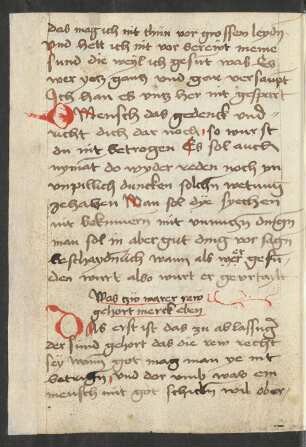 das mag ich nit thun vor grossen leydn
Vnd hett ich nit vor bereint meine
sund die weyl ich gesunt was Es
wer yetz gantz vnd gar versaupt
Ich han es vntz her nit gespart
O Mensch das gedenck vnd
richt dich dar noch so wurst
du nit betrogen Es sol auch
nymant do wyder reden noch yn
vnpillich duncken solchn
gehaben Man sol die syechen
nit bekumern mit vnnutzn dingn
man sol in aber gut ding vor sagn
wann als
den wurt also wurt er geurtailt
Was tzw warer rew
gehort merck eben
Das erst ist das zu ablassung
der sund gehort das die rew recht
sey wann got mag man ye nit
betrign vnd dar vmb was ein
mensch mit got schickn wil aber